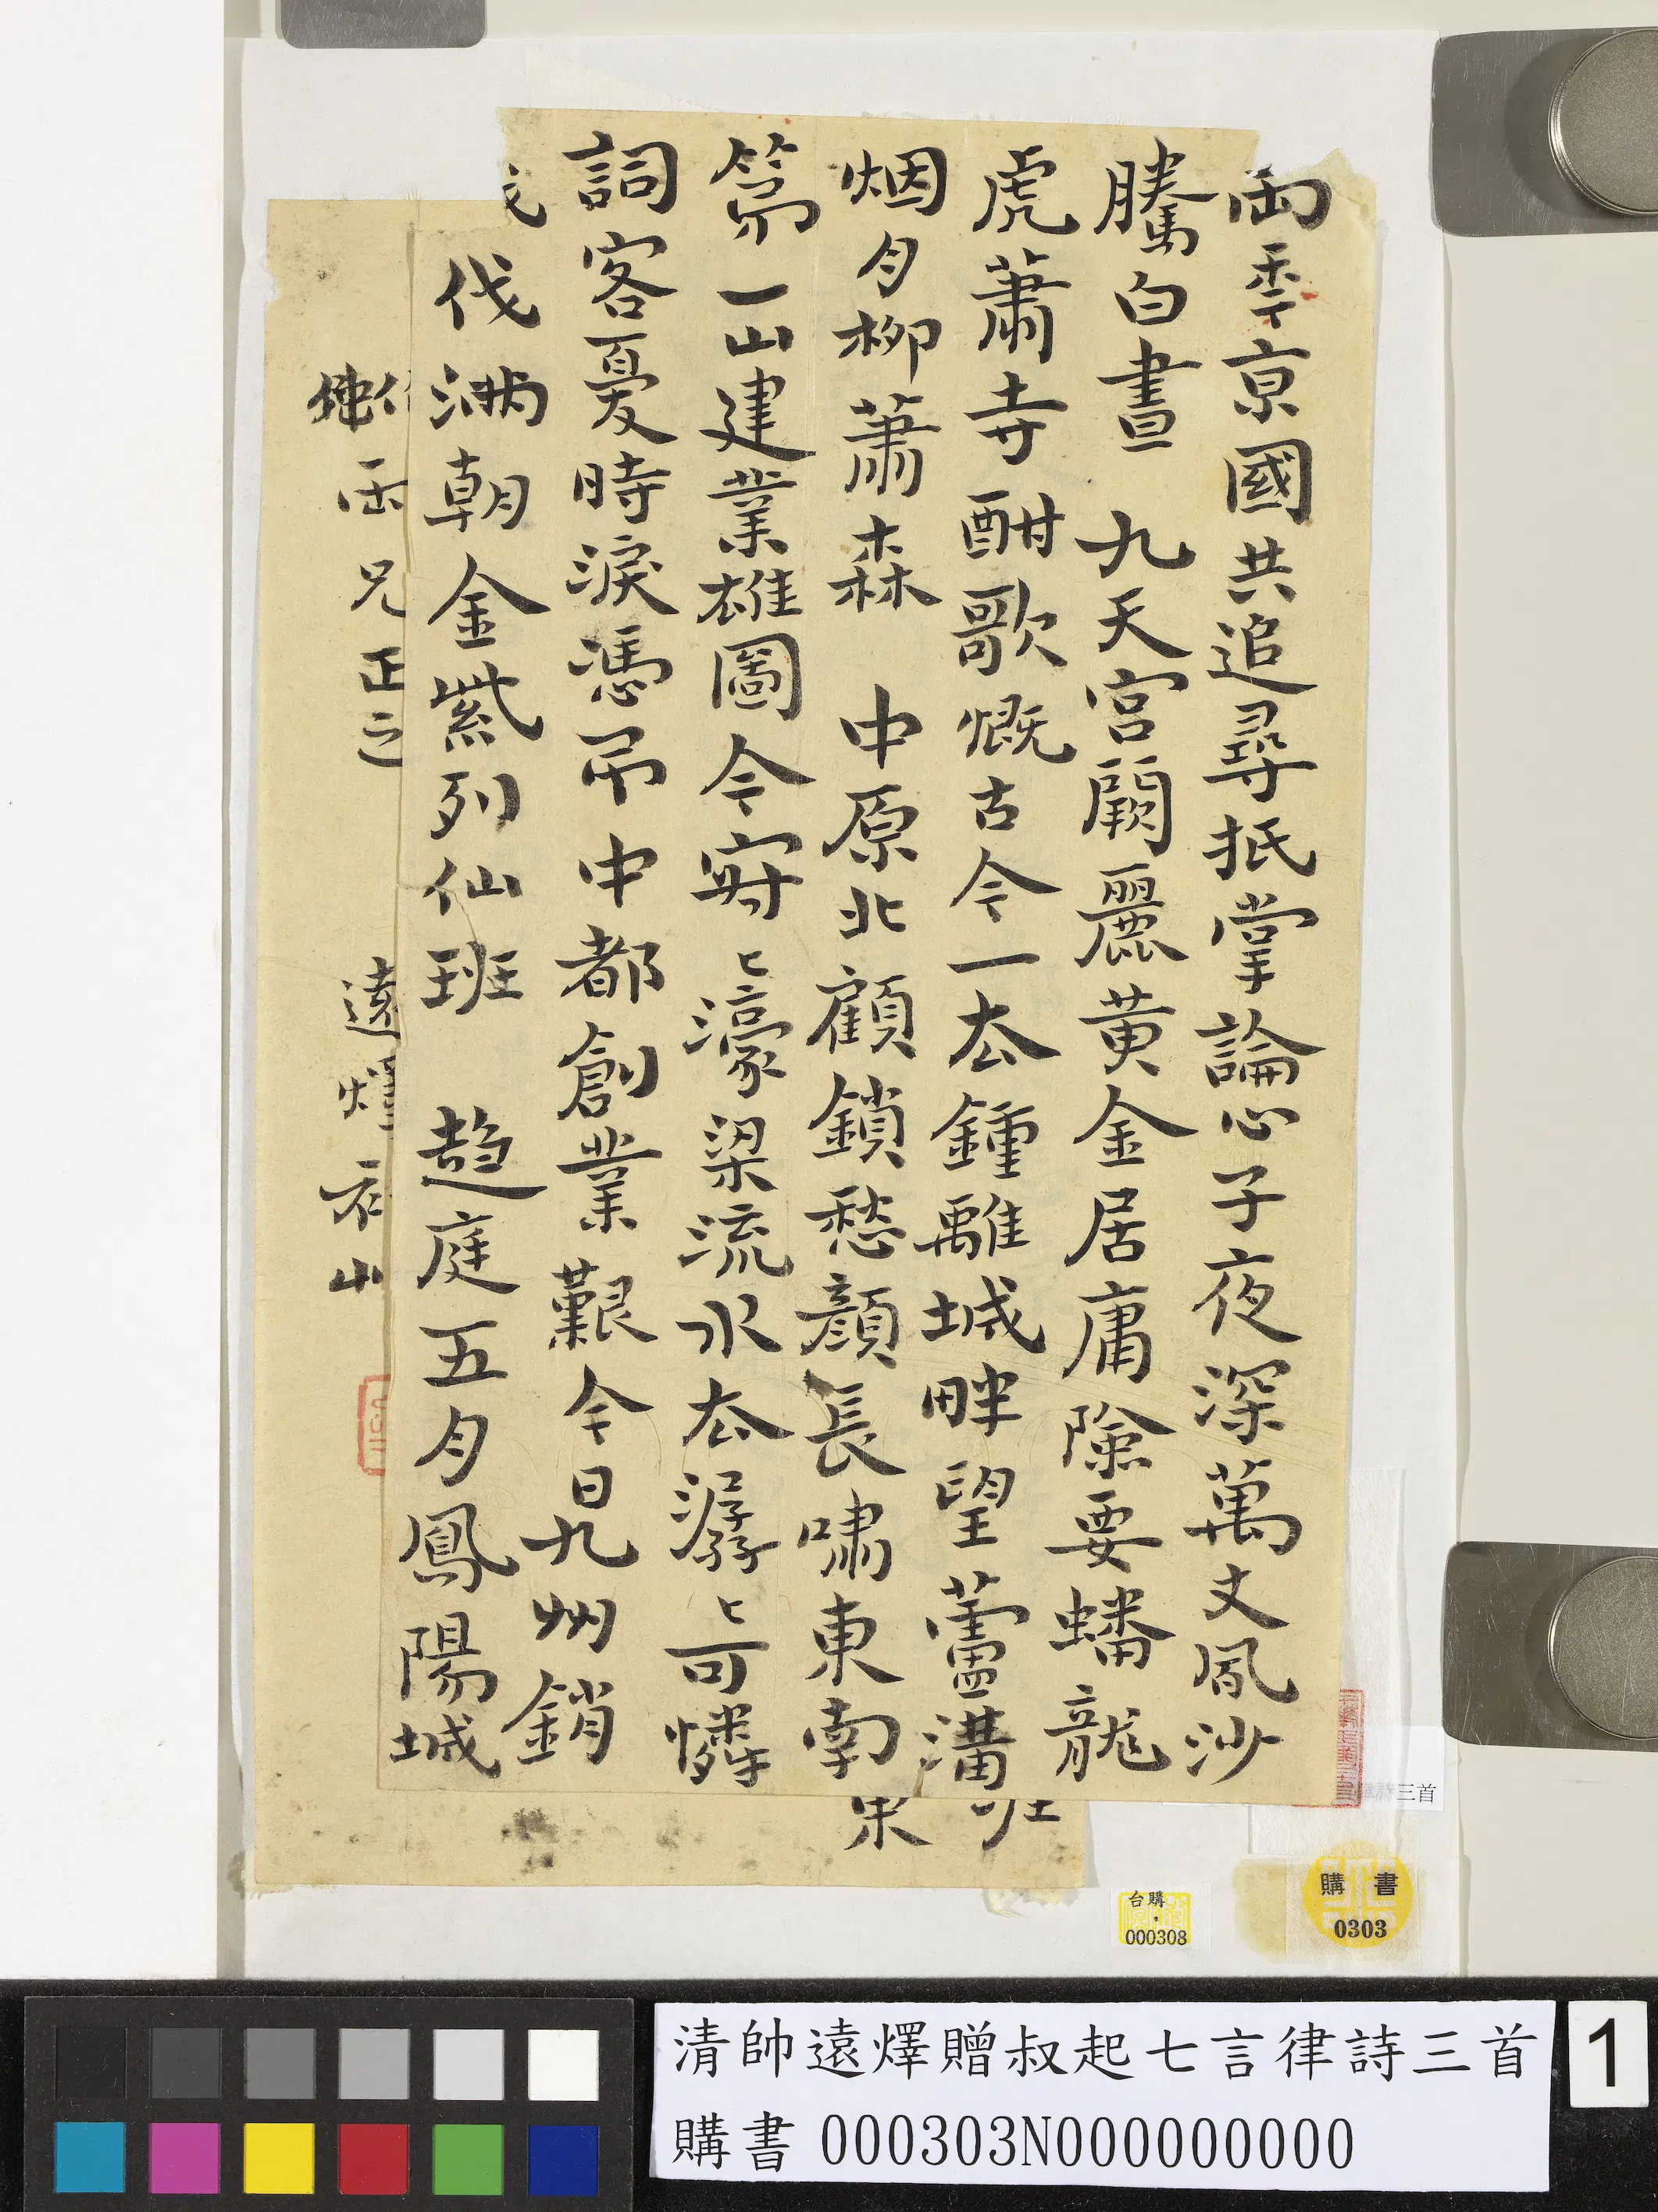 兩年京國共追尋抵掌論心子夜深萬丈風沙
騰白晝 九天宮闕麗黃金居庸險要蟠龍
虎蕭寺酣歌慨古今一去鍾離城畔望蘆溝
烟月柳蕭森 中原北顧鎖愁顏長嘯東南
第一山建業雄圖今寂〻濠梁流水去潺〻可憐
詞客憂時淚憑吊中都創業艱今日九州銷
伐滿朝金紫列仙班 趨庭五月鳳陽城
兄正之
遠燡 山
三首
台購
000308
購書
0303
清帥遠燡贈叔起七言律詩三首
購書 000303N000000000
1